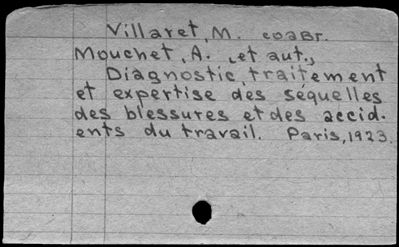 Villaret, M. coавт.
Mouchet, A. , et aut.,
Diagnostic traitement
et expertise des séquelles
des blessures et des accid-
ents du travail. Paris, 1923.